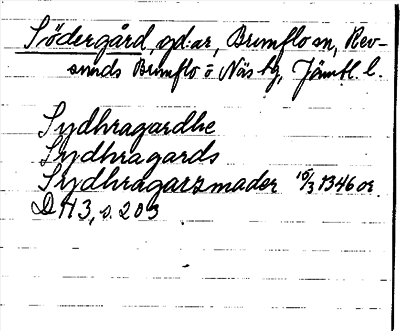 Södergård, gd:ar, Brunflo sn, Rev-
sunds Brunflo o Näs tg, Jämtl. l.
Sydhragardhe
Sydhragards
Sydhragarzmader 15/3 1346 or.
DH3, s. 203